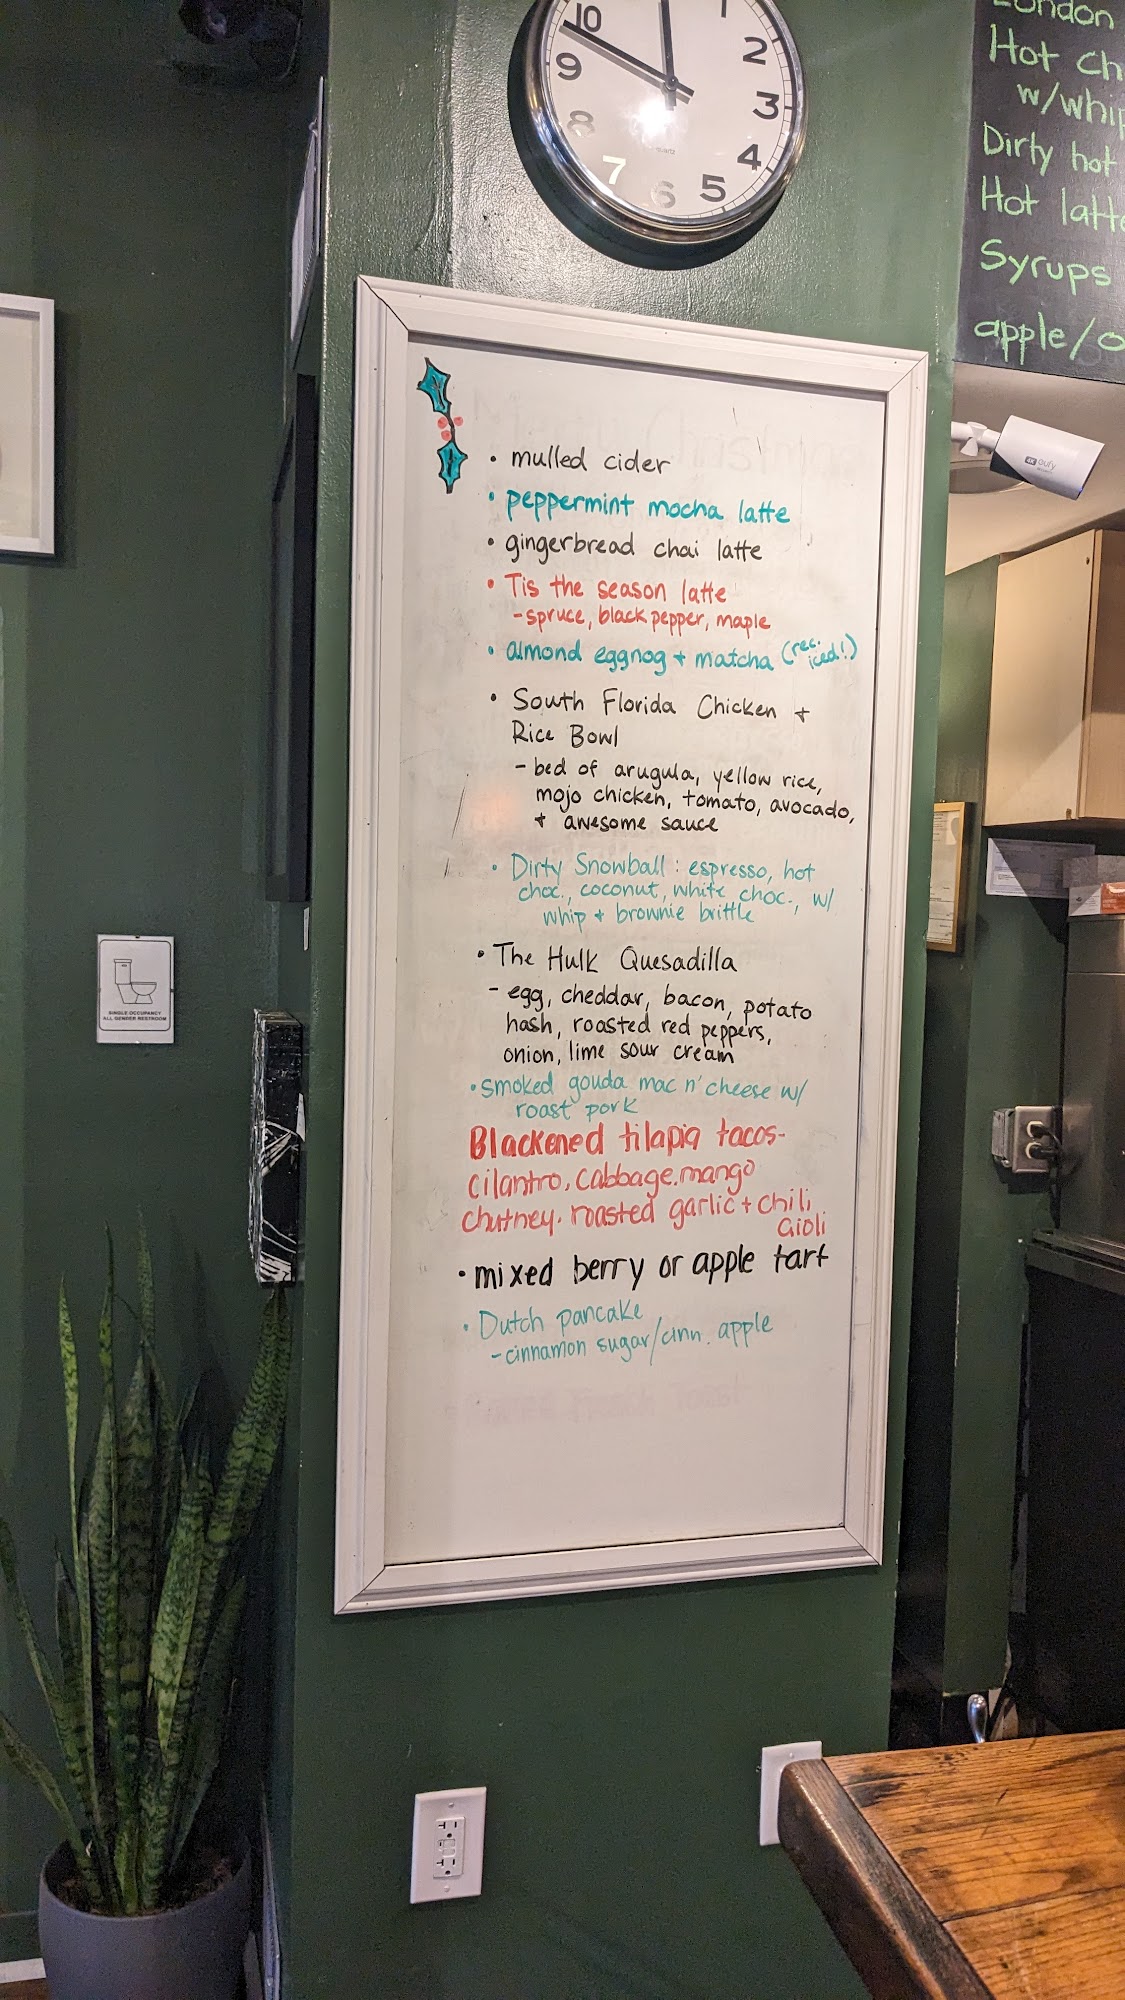 10
1
2
9
3
8
4
7
5
6
QUARTZ
London
Hot Ch
w/whip
Dirty hot
Hot latte
Syrups
apple/
4K eufy
• mulled cider
• peppermint mocha latte
• gingerbread chai latte
• Tis the season latte
- spruce, black pepper, maple
• almond eggnog + matcha (rec. iced!)
• South Florida Chicken +
Rice Bowl
- bed of arugula, yellow rice,
mojo chicken, tomato, avocado,
+ awesome sauce
• Dirty Snowball : espresso, hot
choc., coconut, white choc., w/
whip + brownie brittle
• The Hulk Quesadilla
- egg, cheddar, bacon, potato
hash, roasted red peppers,
onion, lime sour cream
• smoked gouda mac n' cheese w/
roast pork
Blackened tilapia tacos-
cilantro, cabbage. mango
chutney. roasted garlic + chili
aioli
• mixed berry or apple tart
• Dutch pancake
- cinnamon sugar/cinn. apple
SINGLE-OCCUPANCY
ALL GENDER RESTROOM